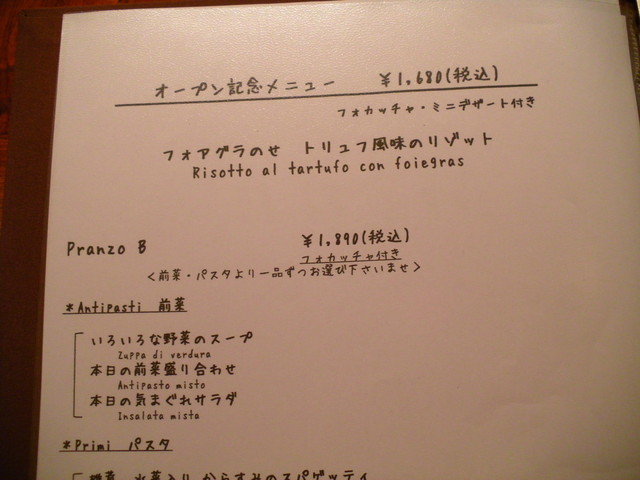 オープン記念メニュー ¥1,680(税込)
フォカッチャ・ミニデザート付き
フォアグラのせ トリュフ風味のリゾット
Risotto al tartufo con foiegras
Pranzo B ¥1,890(税込)
フォカッチャ付き
<前菜・パスタより一品ずつお選び下さいませ>
*Antipasti 前菜
いろいろな野菜のスープ
Zuppa di verdura
本日の前菜盛り合わせ
Antipasto misto
本日の気まぐれサラダ
Insalata mista
*Primi パスタ
水菜入り からすみのスパゲッティ